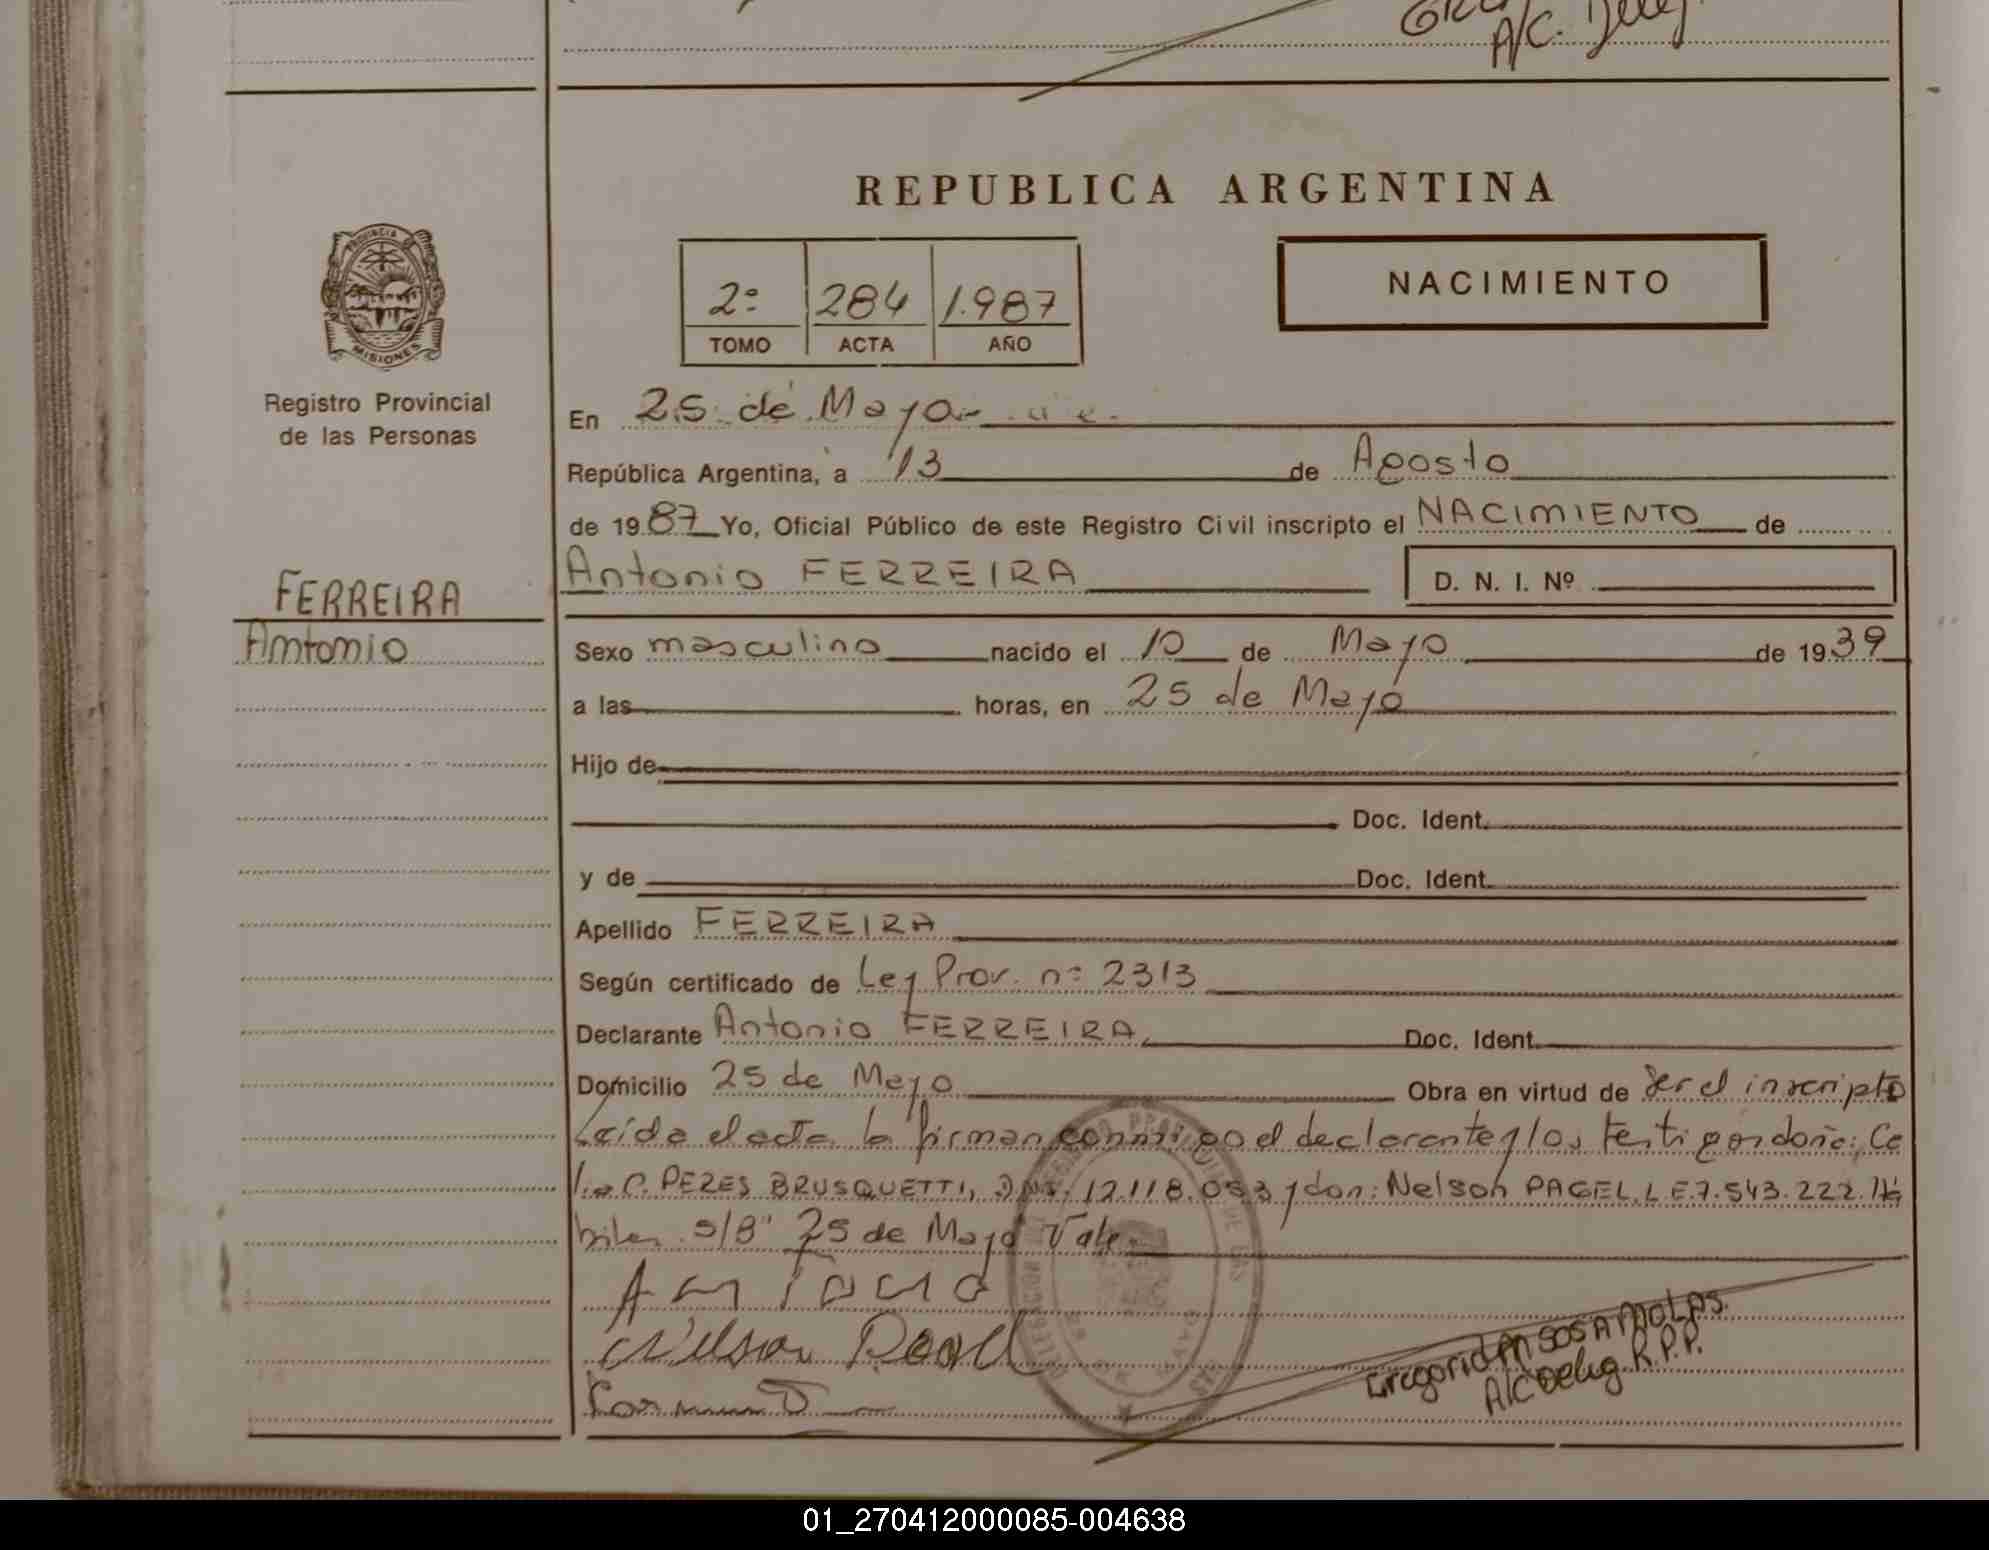 A/C. Deleg.
REPUBLICA ARGENTINA
PROVINCIA DE
MISIONES
Registro Provincial
de las Personas
2º 284 1.987
TOMO ACTA AÑO
NACIMIENTO
En 25 de Mayo
República Argentina, a 13 de Agosto
de 1987 Yo, Oficial Público de este Registro Civil inscripto el NACIMIENTO de
Antonio FERREIRA D. N. I. Nº
FERREIRA
Antonio
Sexo masculino nacido el 10 de Mayo de 1939
a las horas, en 25 de Mayo
Hijo de
Doc. Ident.
y de Doc. Ident.
Apellido FERREIRA
Según certificado de Ley Prov. nº 2313
Declarante Antonio FERREIRA Doc. Ident.
Domicilio 25 de Mayo Obra en virtud de ser el inscripto
Leída el acta la firman conmigo el declarante y los testigos doña: Ce
lia C. PERES BRUSQUETTI, DNI. 12.118.053 y don: Nelson PAGEL, L.E. 7.543.222. Há
biles s/B" 25 de Mayo Vale.
Antonio
Nelson Pagel
Gregorio
A/C Deleg. R.P.P.
01_270412000085-004638